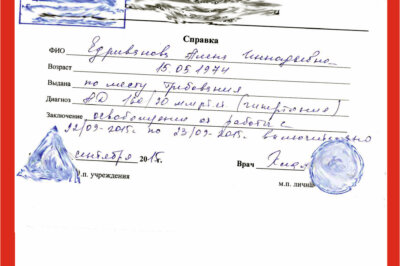 Справка
ФИО Едриванова Алена Геннадьевна
Возраст 15.05.1974
Выдана по месту требования
Диагноз АД 160/90 мм рт.ст (гипертония)
Заключение освобождение от работы с
22/09-2015г. по 23/09-2015г. включительно
сентября 2015г. Врач
м.п. учреждения м.п. личн